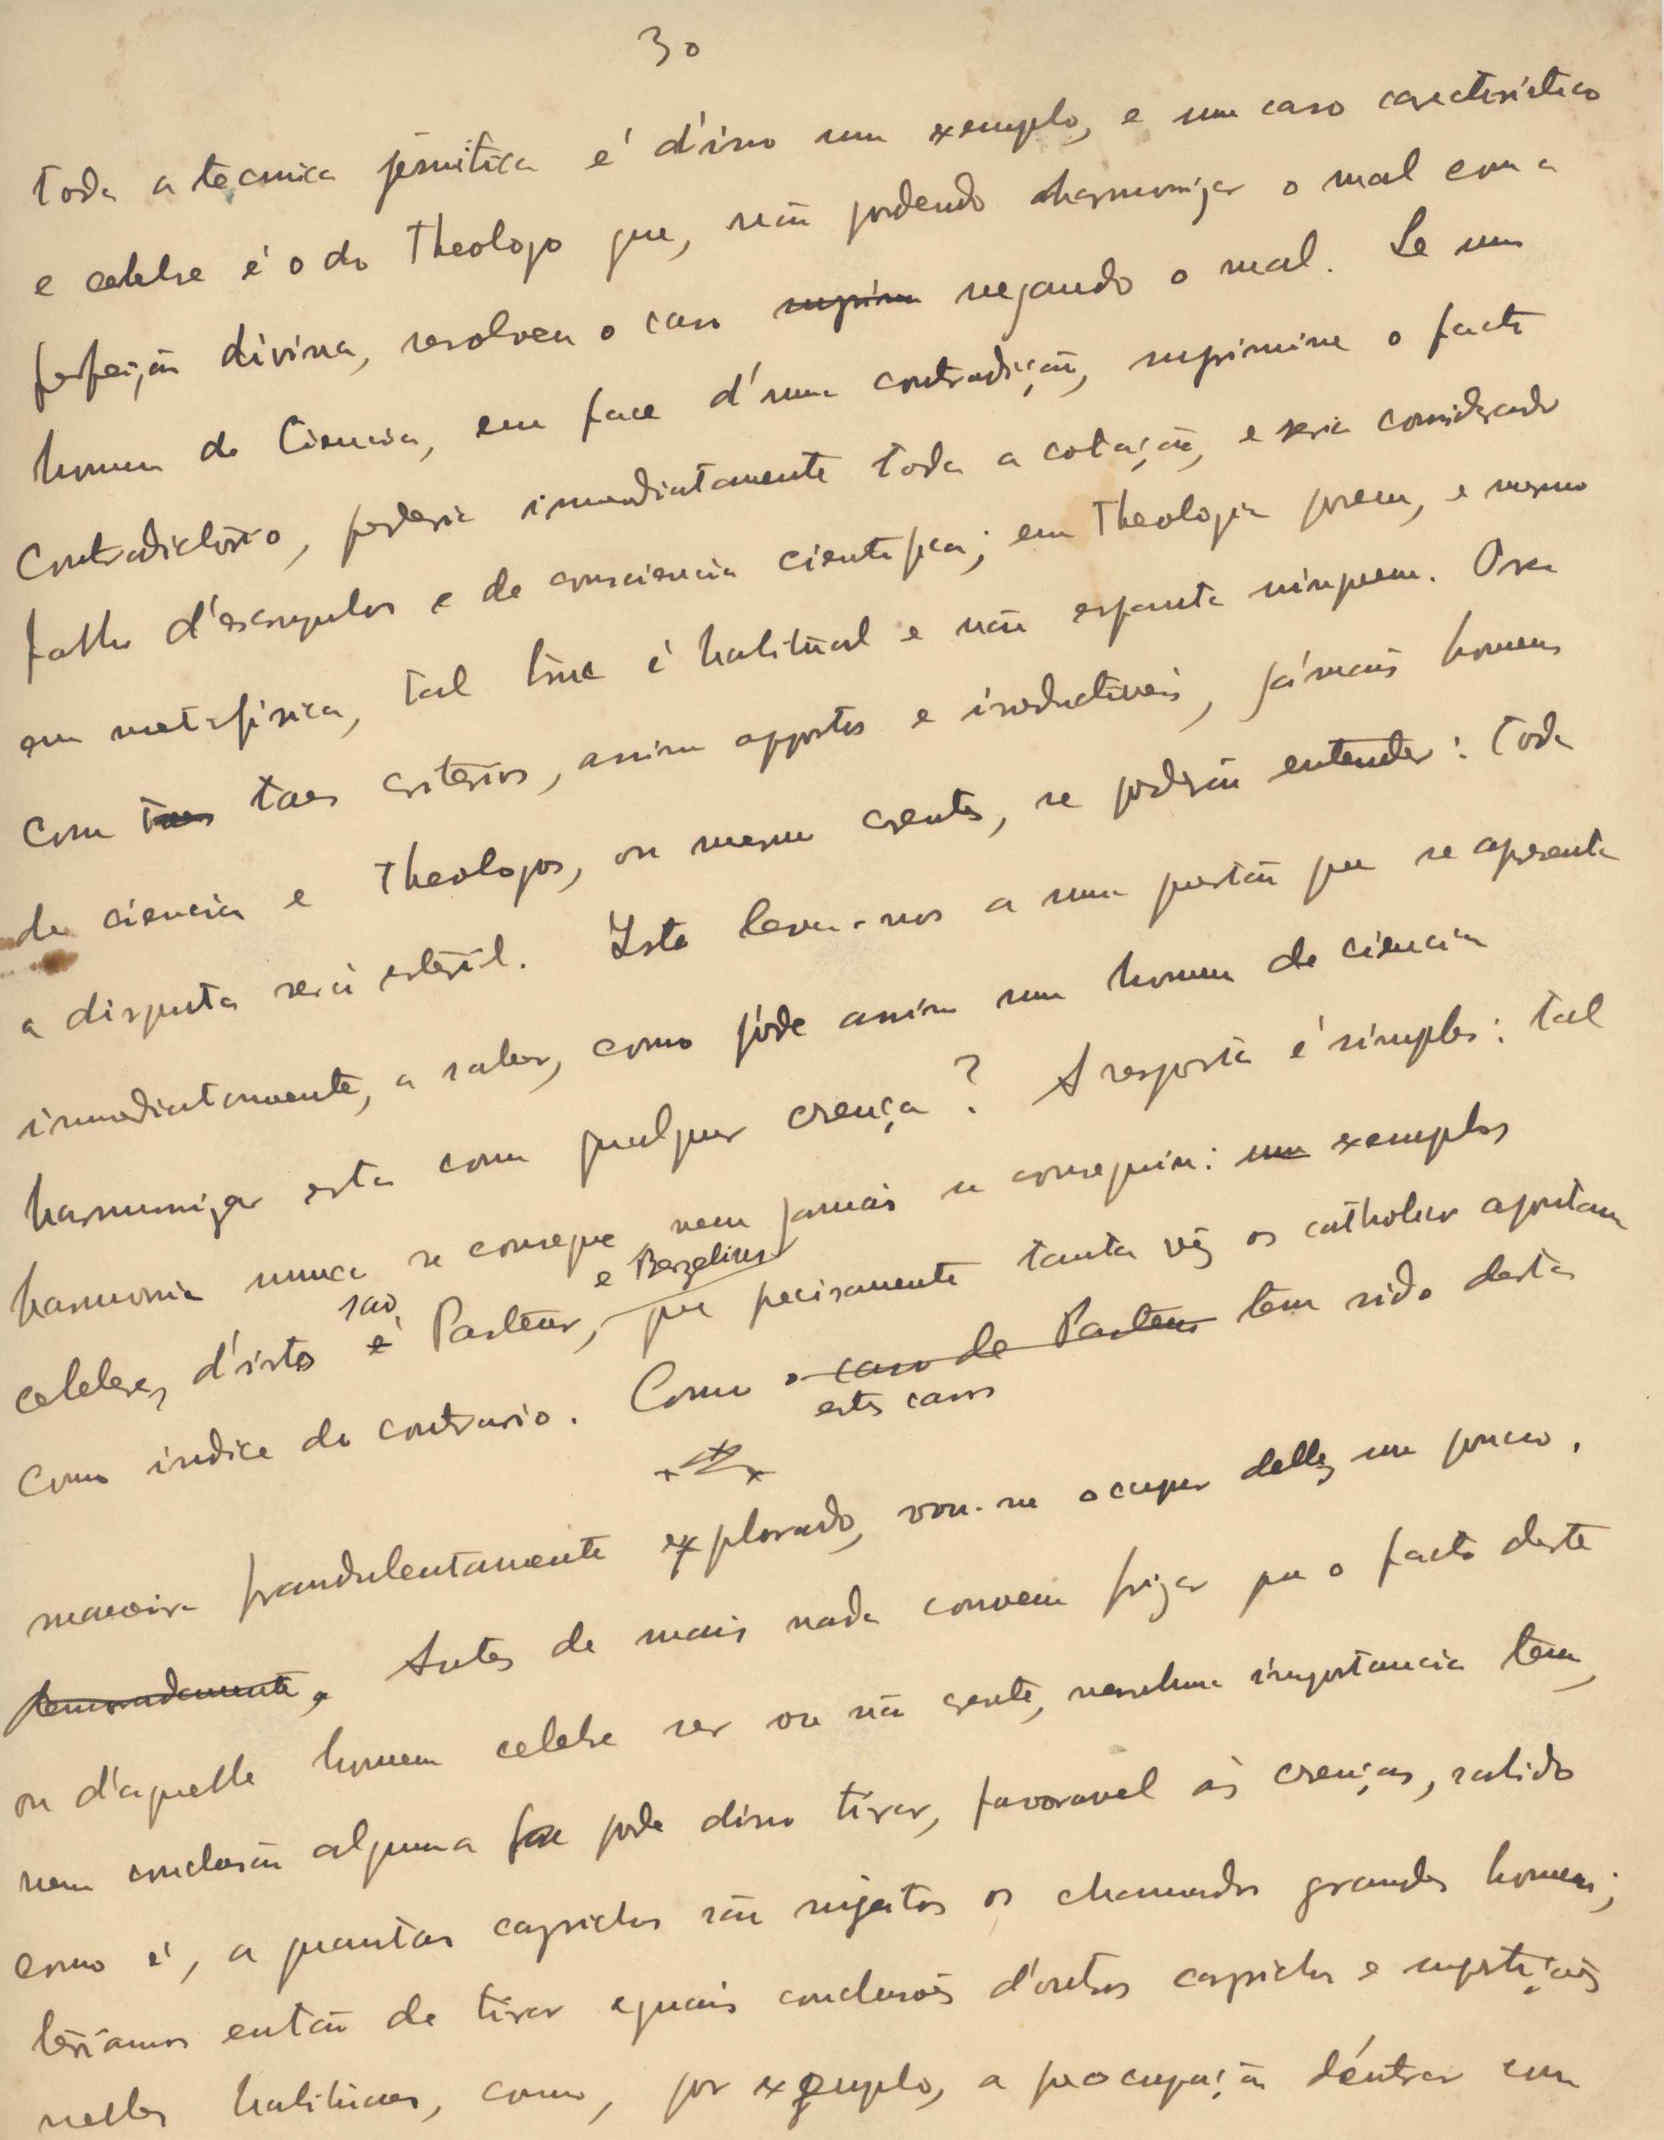 30
toda a technica jesuitica é d'isso um exemplo, e um caso caracteristico
e celebre é o do Theologo que, não podendo harmonizar o mal com a
perfeição divina, resolveu o caso negando o mal. Se um
homem de Ciencia, em face d'uma contradicção, suprimisse o facto
contradictorio, perderia immediatamente toda a cotação, e seria considerado
falho d'escrupulos e de consciencia cientifica; em Theologia porem, e mesmo
em metafisica, tal é habitual e não espanta ninguem. Ora
com taes criterios, assim oppostos e irreductiveis, jámais homens
de ciencia e Theologos, ou mesmo crentes, se poderão entender: toda
a disputa será esteril. Isto leva-nos a uma questão que se apresenta
immediatamente, a saber, como póde assim um homem de ciencia
harmonizar esta com qualquer crença? A resposta é simples: tal
harmonia nunca se consegue nem jamais se conseguiu: um exemplos
celebres, d'isto são é Pasteur, e Berzelius que precisamente tanta vez os catholicos apontam
como indice do contrario. Como o caso de Pasteur tem sido desta
estes casos
maneira fraudulentamente explorado, vou-me occupar delles um pouco.
Antes de mais nada convem frizar que o facto deste
ou d'aquelle homem celebre ser ou não crente, nenhuma importancia tem,
nem conclusão alguma se pode disso tirar, favoravel ás crenças, sabido
como é, a quantos caprichos são sujeitos os chamados grandes homens;
teriamos então de tirar eguais conclusões d'outros caprichos e superstições
nelles habituaes, como, por exemplo, a preocupação d'entrar com